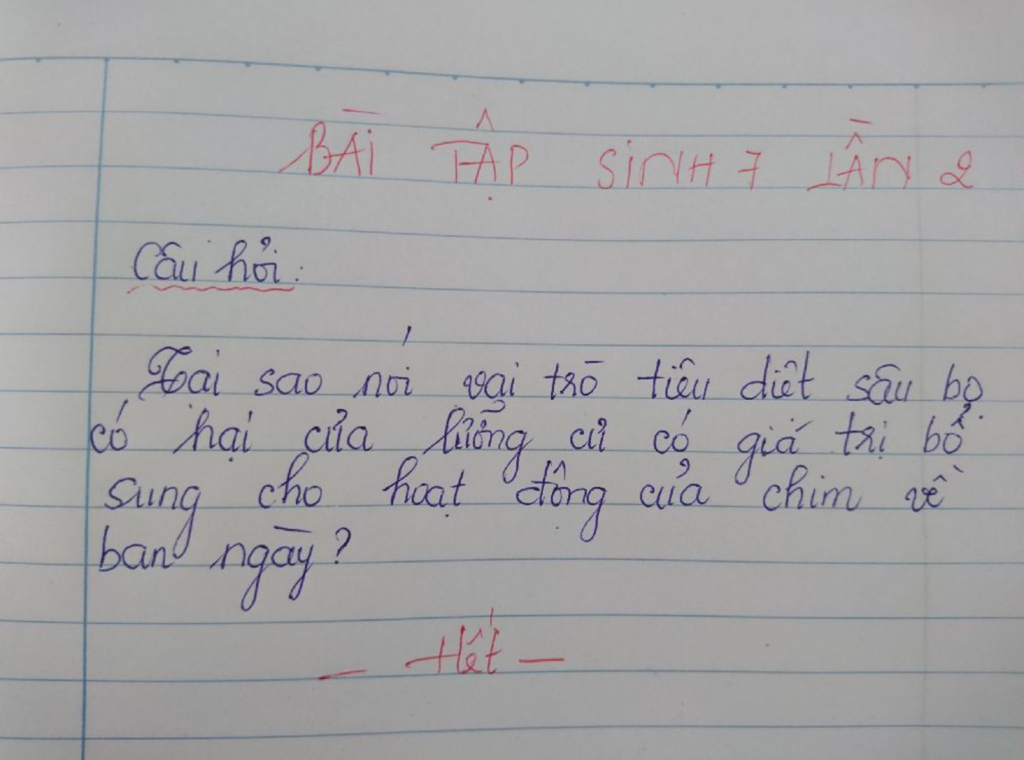 BÀI TẬP SINH 7 LẦN 2
Câu hỏi:
Tại sao nói vai trò tiêu diệt sâu bọ
có hại của lưỡng cư có giá trị bổ
sung cho hoạt động của chim về
ban ngày?
- Hết -